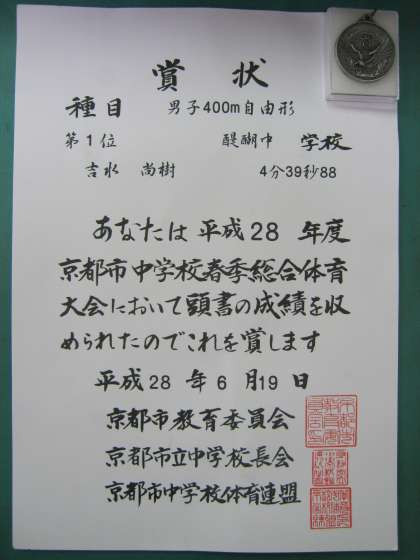 賞状
種目 男子400m自由形
第1位 醍醐中 学校
吉水 尚樹 4分39秒88
あなたは平成28年度
京都市中学校春季総合体育
大会において頭書の成績を収
められたのでこれを賞します
平成28年6月19日
京都市教育委員会
京都市立中学校長会
京都市中学校体育連盟